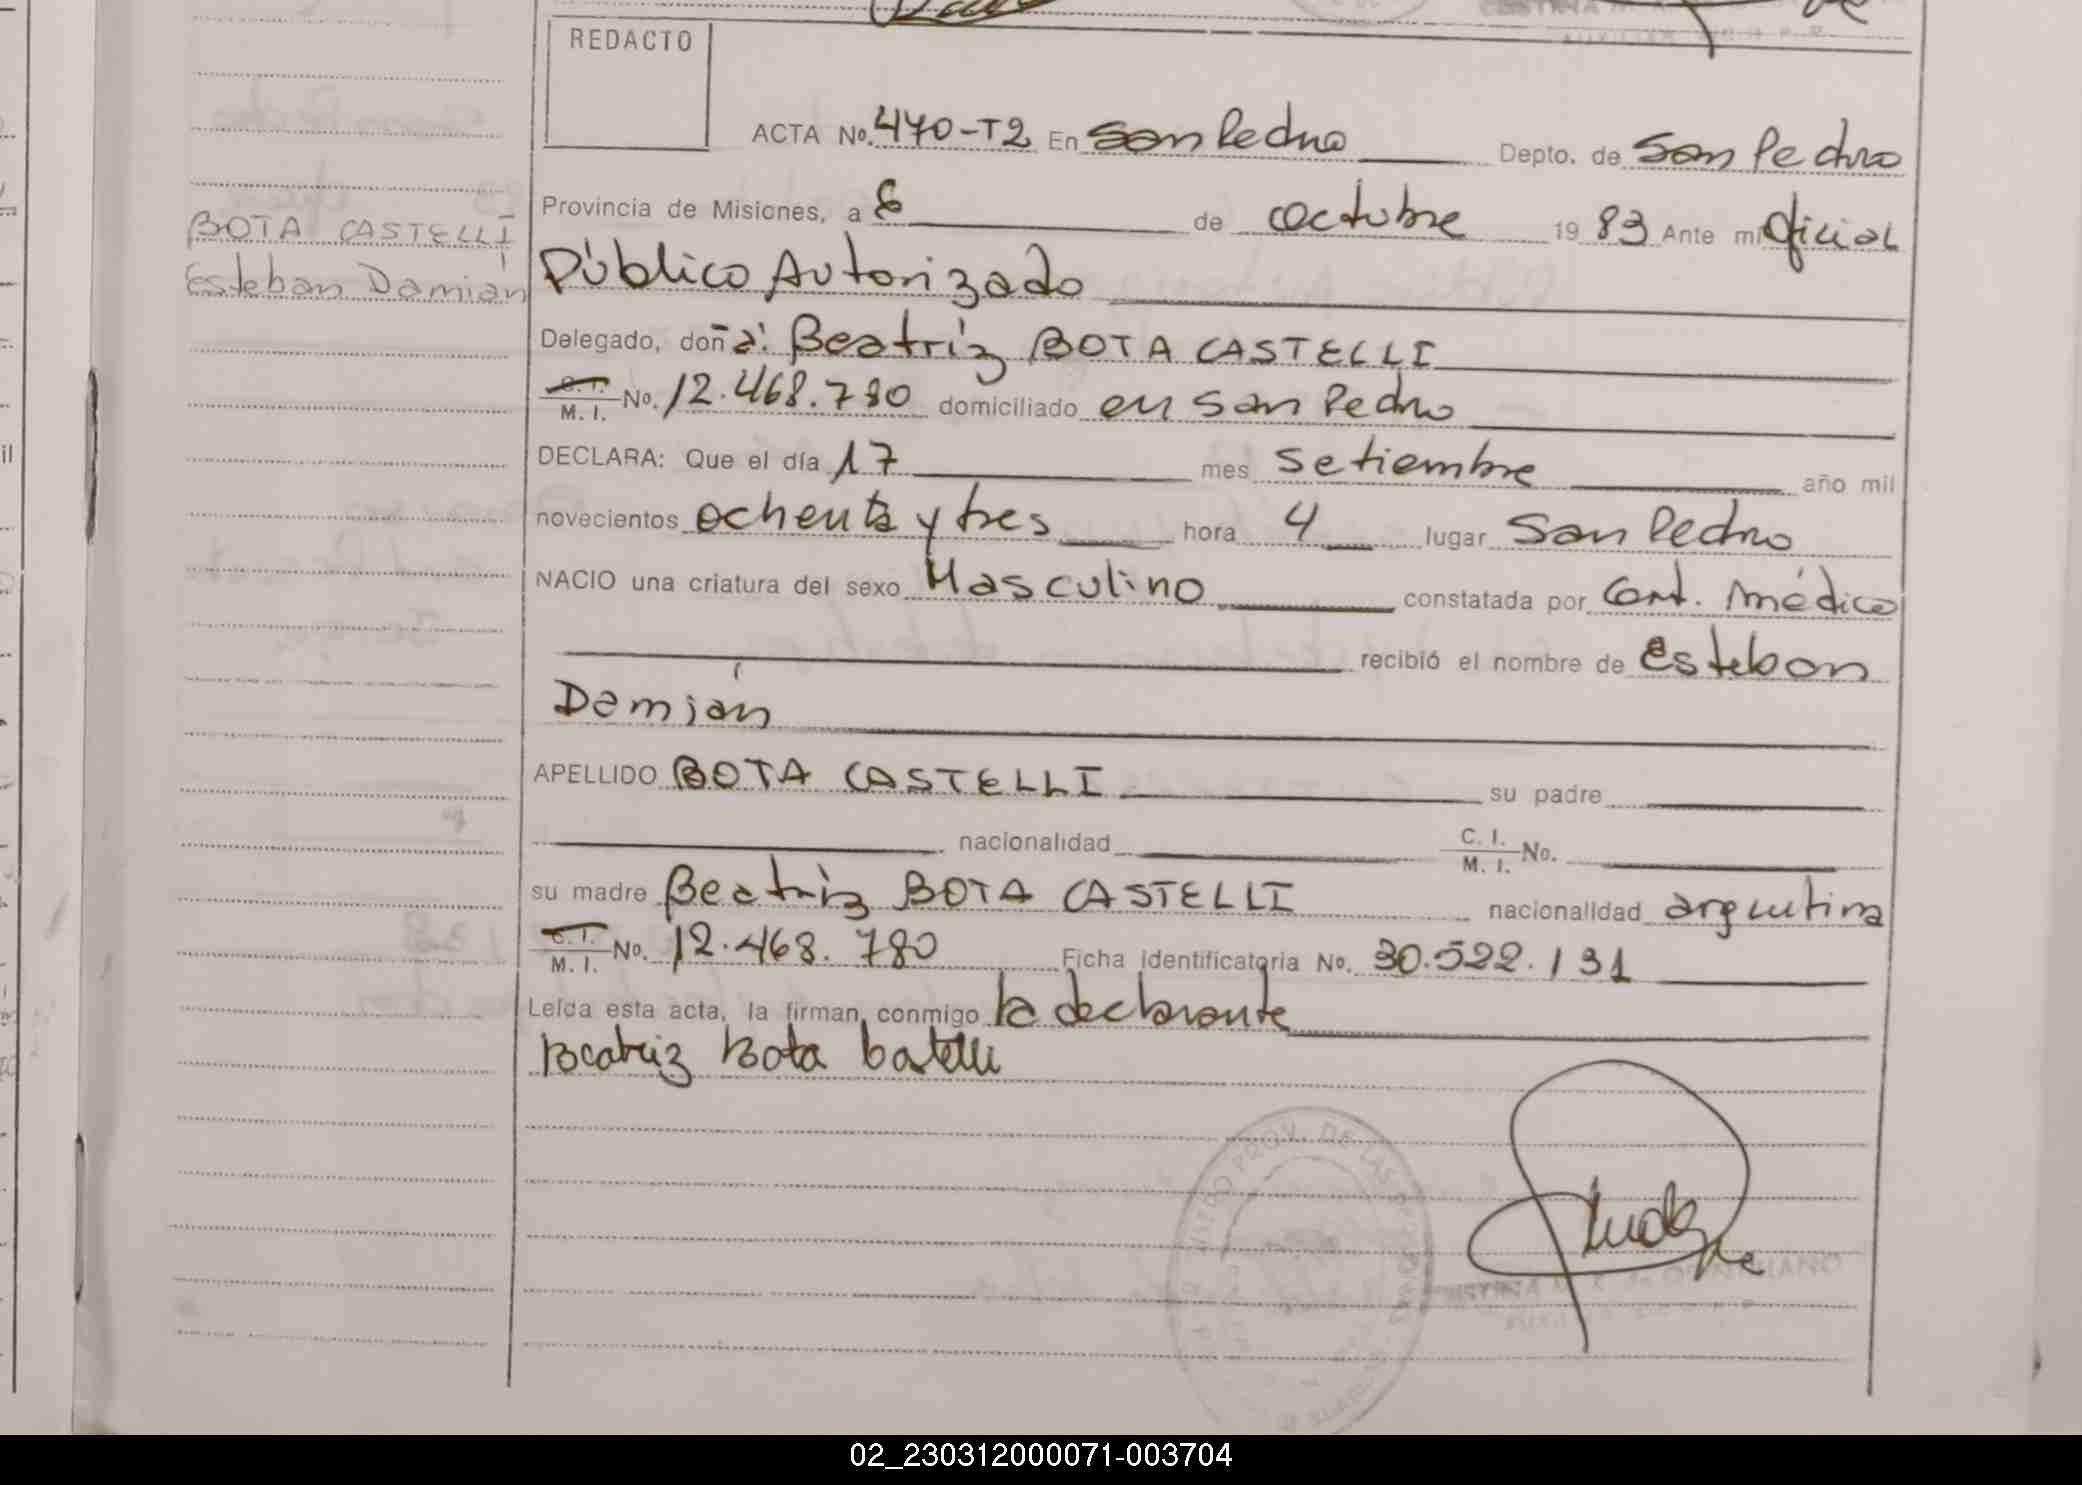 REDACTO
ACTA No. 470-T2 En San Pedro Depto. de San Pedro
Provincia de Misiones, a 6 de octubre 1983 Ante mi Oficial
Público Autorizado
BOTA CASTELLI
Esteban Damián
Delegado, doña: Beatriz BOTA CASTELLI
C. I. / M. I. No. 12.468.780 domiciliado en San Pedro
DECLARA: Que el día 17 mes Setiembre año mil
novecientos ochenta y tres hora 4 lugar San Pedro
NACIO una criatura del sexo Masculino constatada por Cert. médico
recibió el nombre de Esteban
Damián
APELLIDO BOTA CASTELLI su padre
nacionalidad C. I. / M. I. No.
su madre Beatriz BOTA CASTELLI nacionalidad argentina
C. I. / M. I. No. 12.468.780 Ficha identificatoria No. 30.522.131
Leída esta acta, la firman conmigo la declarante
Beatriz Bota Castelli
PROV. DE LAS
02_230312000071-003704